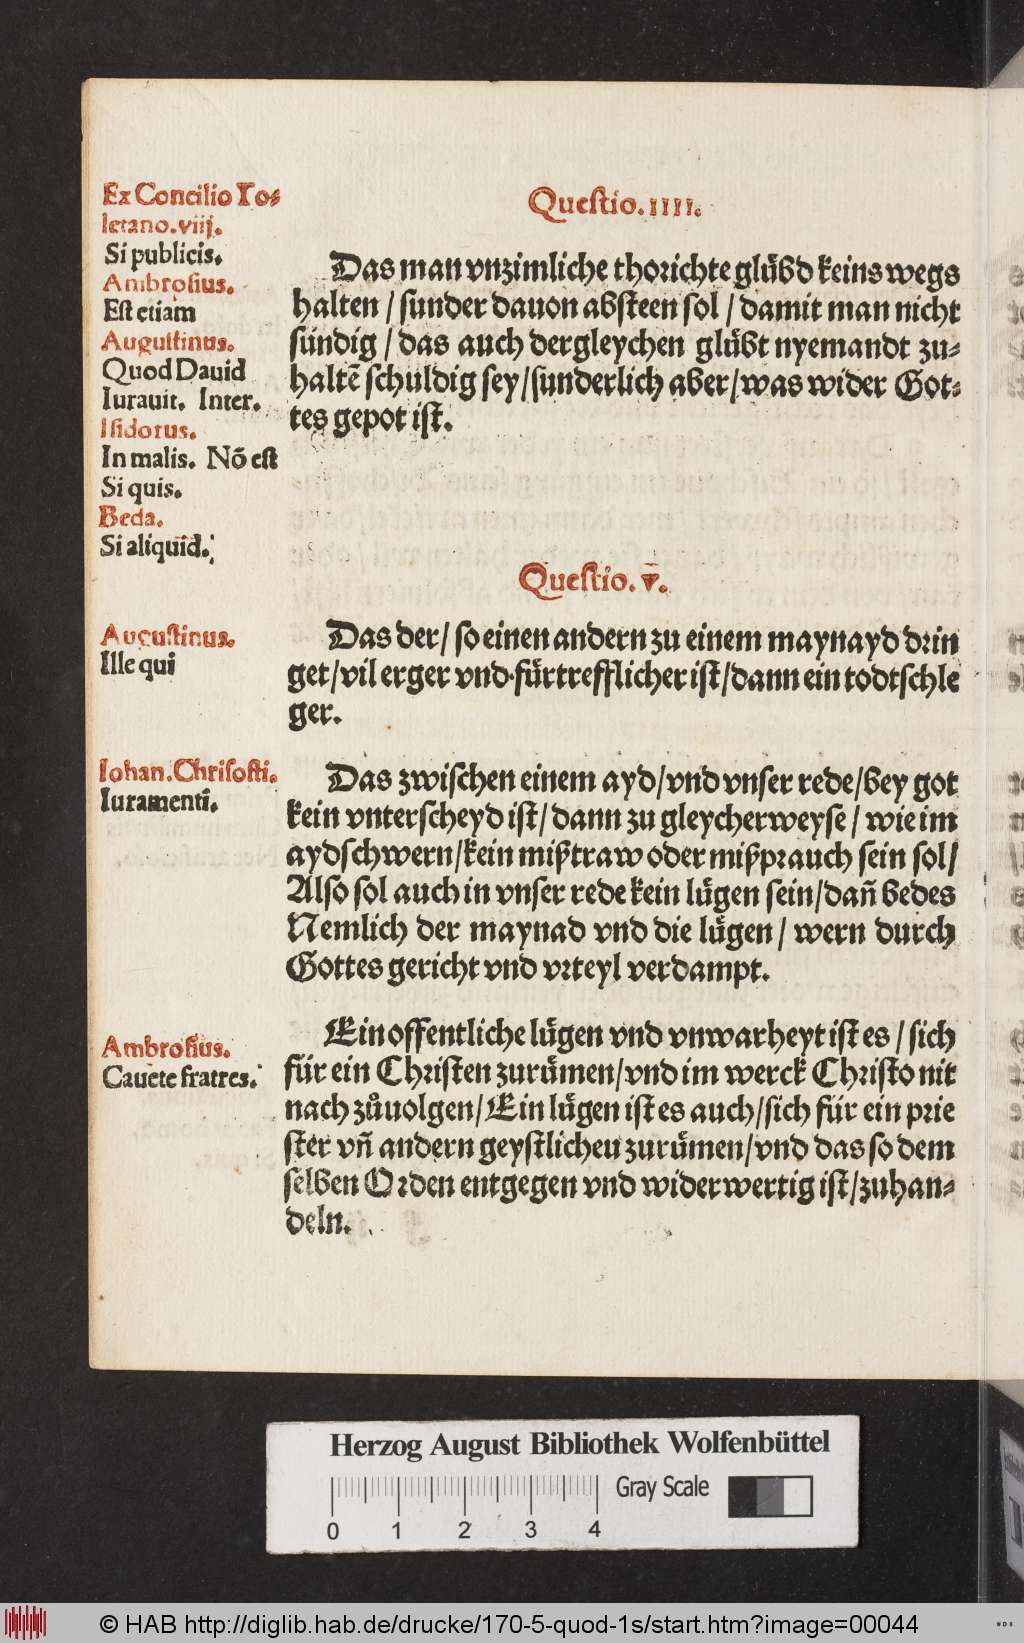 Ex Concilio To⸗
letano.viij.
Si publicis.
Ambrosius.
Est etiam
Augustinus.
Quod Dauid
Iurauit. Inter.
Isidorus.
In malis. Nō est
Si quis.
Beda.
Si aliquid.
Questio.IIII.
Das man vnzimliche thorichte glůbd keins wegs
halten / sunder dauon absteen sol / damit man nicht
sündig / das auch dergleychen glůbt nyemandt zu⸗
haltē schuldig sey/sunderlich aber/was wider Got⸗
tes gepot ist.
Questio.v.
Augustinus.
Ille qui
Das der/ so einen andern zu einem maynayd drin
get/vil erger vnd fürtrefflicher ist/dann ein todtschle
ger.
Iohan.Chrisosti.
Iuramenti.
Das zwischen einem ayd/vnd vnser rede/bey got
kein vnterscheyd ist/dann zu gleycherweyse / wie im
aydschwern/kein mißtraw oder mißprauch sein sol/
Also sol auch in vnser rede kein lůgen sein/dañ bedes
Nemlich der maynad vnd die lůgen / wern durch
Gottes gericht vnd vrteyl verdampt.
Ambrosius.
Cauete fratres.
Ein offentliche lůgen vnd vnwarheyt ist es / sich
für ein Christen zurůmen/vnd im werck Christo nit
nach zůuolgen/Ein lůgen ist es auch/sich für ein prie
ster vñ andern geystlichen zurůmen/vnd das so dem
selben Orden entgegen vnd widerwertig ist/zuhan⸗
deln.
Herzog August Bibliothek Wolfenbüttel
Gray Scale
0 1 2 3 4
© HAB http://diglib.hab.de/drucke/170-5-quod-1s/start.htm?image=00044